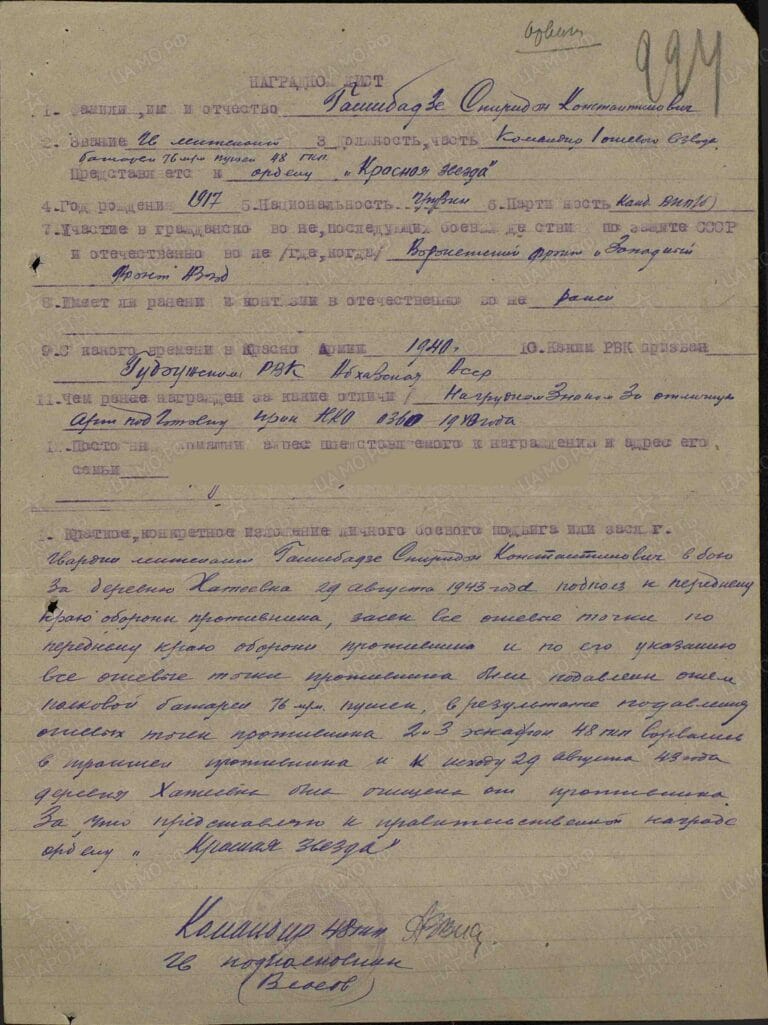 224
НАГРАДНОЙ ЛИСТ
1. Фамилия, имя и отчество Гашибадзе Спиридон Константинович
2. Звание Гв лейтенант 3 Должность, часть Командир 1 огневого взвода
батареи 76 м/м пушек 48 гкп
Представляется к ордену "Красная звезда"
4. Год рождения 1917 5. Национальность грузин 6. Партийность Канд. ВКП(б)
7. Участие в гражданской войне, последующих боевых действиях по защите СССР
и отечественной войне /где, когда/ Воронежский фронт и Западный
фронт
8. Имеет ли ранения и контузии в отечественной войне ранен
9. С какого времени в Красной Армии 1940 г 10. Каким РВК призван
РВК Абхазская Асср
11. Чем ранее награжден за какие отличия / Нагрудным Знаком За отличную
Арт подготовку НКО 1940 года
12. Постоянный домашний адрес представляемого к награждению и адрес его
семьи
1. Краткое, конкретное изложение личного боевого подвига или заслуг.
Гвардии лейтенант Гашибадзе Спиридон Константинович в бою
за деревню Хатеевка 29 августа 1943 года подполз к переднему
краю обороны противника, засек все огневые точки по
переднему краю обороны противника и по его указанию
все огневые точки противника были подавлены огнем
полковой батареи 76 м/м. пушек, в результате подавления
огневых точек противника 2 и 3 эскадрон 48 гкп ворвались
в траншеи противника и к исходу 29 августа 43 года
деревня Хатеевка была очищена от противника.
За что представляю к правительственной награде
ордену "Красная звезда"
Командир 48 гкп
Гв подполковник
(Власов)
ЦАМО.РФ
ПАМЯТЬ НАРОДА